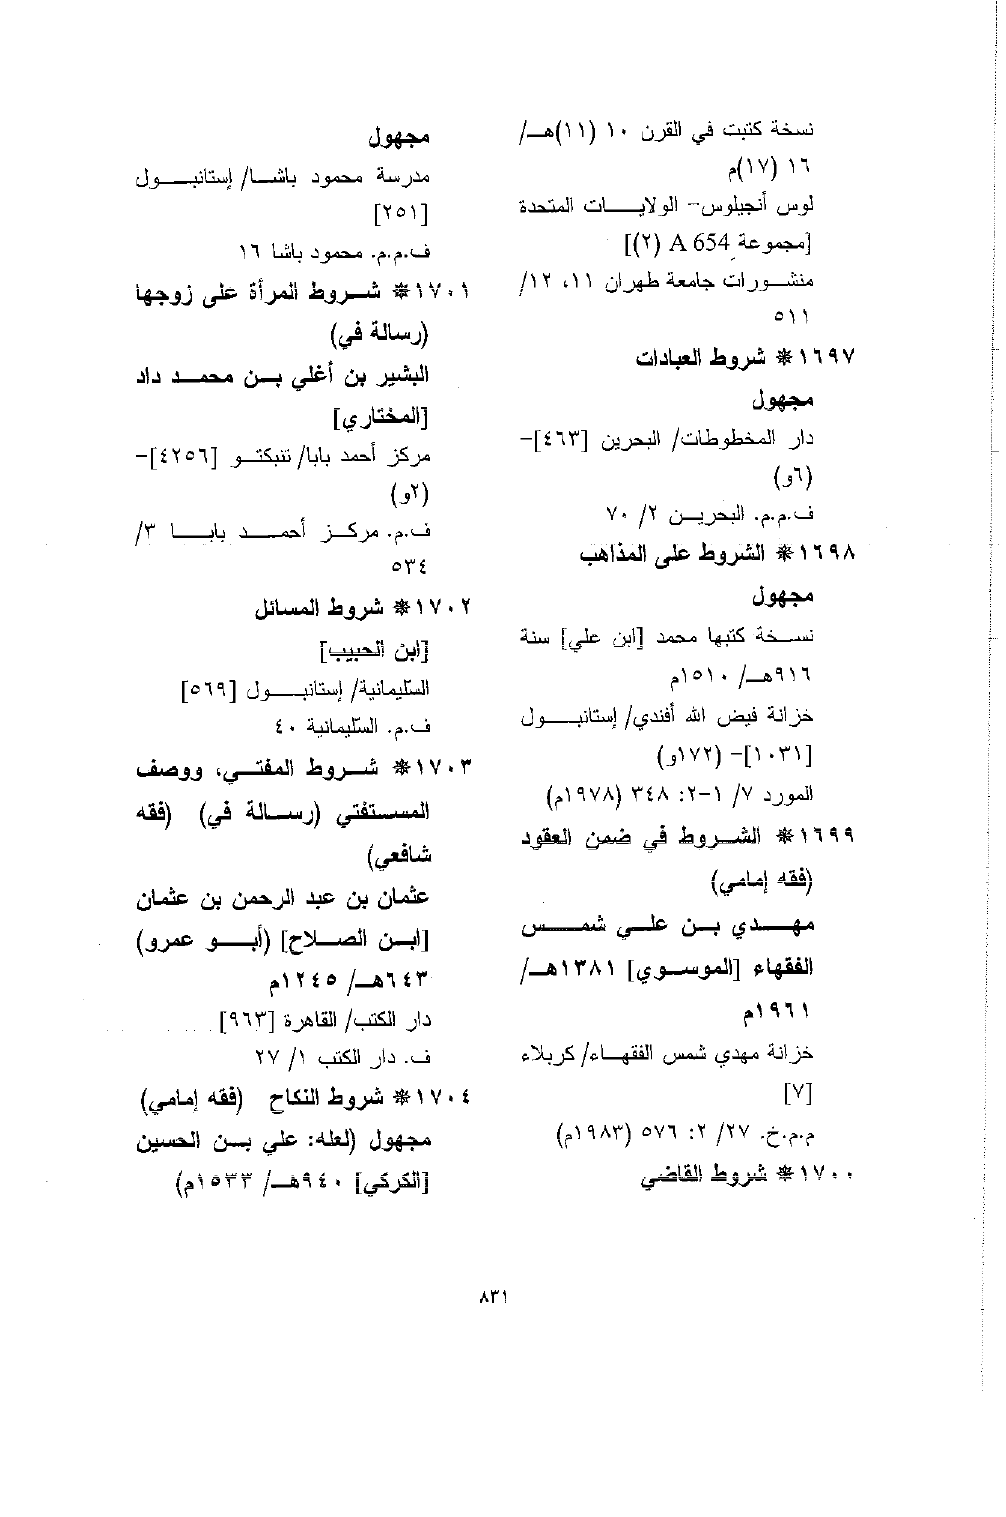 نسخة كتبت في القرن ١٠ (١١)هـ/
١٦ (١٧)م
لوس أنجيلوس- الولايات المتحدة
[مجموعة A 654 (٢)]
منشورات جامعة طهران ١١، ١٢/
٥١١
١٦٩٧* شروط العبادات
مجهول
دار المخطوطات/ البحرين [٤٦٣]-
(٦و)
ف.م.م. البحرين ٢/ ٧٠
١٦٩٨* الشروط على المذاهب
مجهول
نسخة كتبها محمد [ابن علي] سنة
٩١٦هـ/ ١٥١٠م
خزانة فيض الله أفندي/ إستانبول
[١٠٣١]- (١٧٢و)
المورد ٧/ ١-٢: ٣٤٨ (١٩٧٨م)
١٦٩٩* الشروط في ضمن العقود
(فقه إمامي)
مهدي بن علي شمس
الفقهاء [الموسوي] ١٣٨١هـ/
١٩٦١م
خزانة مهدي شمس الفقهاء/ كربلاء
[٧]
م.م.خ. ٢٧/ ٢: ٥٧٦ (١٩٨٣م)
١٧٠٠* شروط القاضي
مجهول
مدرسة محمود باشا/ إستانبول
[٢٥١]
ف.م.م. محمود باشا ١٦
١٧٠١* شروط المرأة على زوجها
(رسالة في)
البشير بن أغلي بن محمد داد
[المختاري]
مركز أحمد بابا/ تنبكتو [٤٢٥٦]-
(٢و)
ف.م. مركز أحمد بابا ٣/
٥٣٤
١٧٠٢* شروط المسائل
[ابن الحبيب]
السّليمانية/ إستانبول [٥٦٩]
ف.م. السّليمانية ٤٠
١٧٠٣* شروط المفتي، ووصف
المستفتي (رسالة في) (فقه
شافعي)
عثمان بن عبد الرحمن بن عثمان
[ابن الصلاح] (أبو عمرو)
٦٤٣هـ/ ١٢٤٥م
دار الكتب/ القاهرة [٩٦٣]
ف. دار الكتب ١/ ٢٧
١٧٠٤* شروط النكاح (فقه إمامي)
مجهول (لعله: علي بن الحسين
[الكركي] ٩٤٠هـ/ ١٥٣٣م)
٨٣١